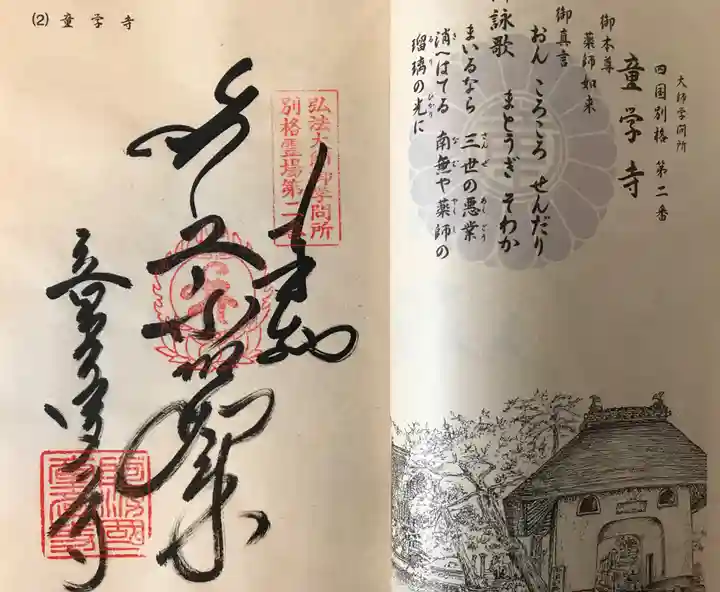 大師学問所
四国別格 第二番
童学寺
御本尊
薬師如来
御真言
おん ころころ せんだり
まとうぎ そわか
詠歌
まいるなら 三世の悪業
消へはてる 南無や薬師の
瑠璃の光に
(2) 童学寺
弘法大師御学問所
別格霊場第二番
奉納
童学寺